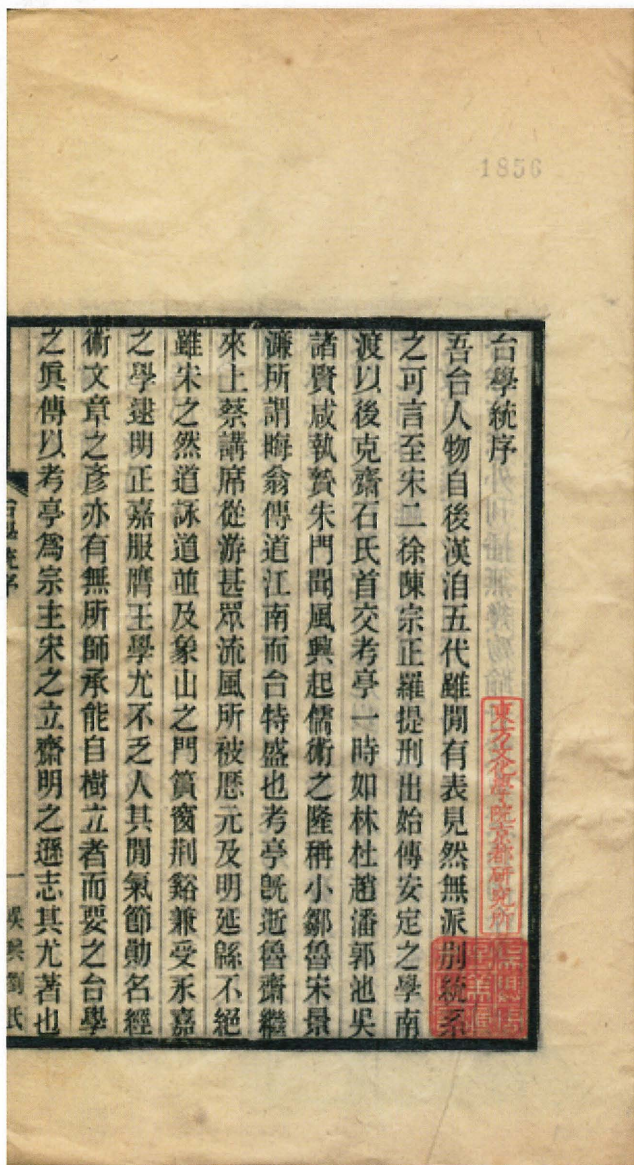 1856
台學統序
吾台人物自後漢洎五代雖閒有表見然無派別統系
之可言至宋二徐陳宗正羅提刑出始傳安定之學南
渡以後克齋石氏首交考亭一時如林杜趙潘郭池吳
諸賢咸執贄朱門聞風興起儒術之隆稱小鄒魯宋景
濂所謂晦翁傳道江南而台特盛也考亭旣逝魯齋繼
來上蔡講席從游甚眾流風所被歷元及明延緜不絕
雖宋之然道詠道並及象山之門篔窗荆谿兼受永嘉
之學逮明正嘉服膺王學尤不乏人其閒氣節勛名經
術文章之彥亦有無所師承能自樹立者而要之台學
之眞傳以考亭爲宗主宋之立齋明之遜志其尤著也
台學統序
一
吳興劉氏
東方文化學院京都研究所